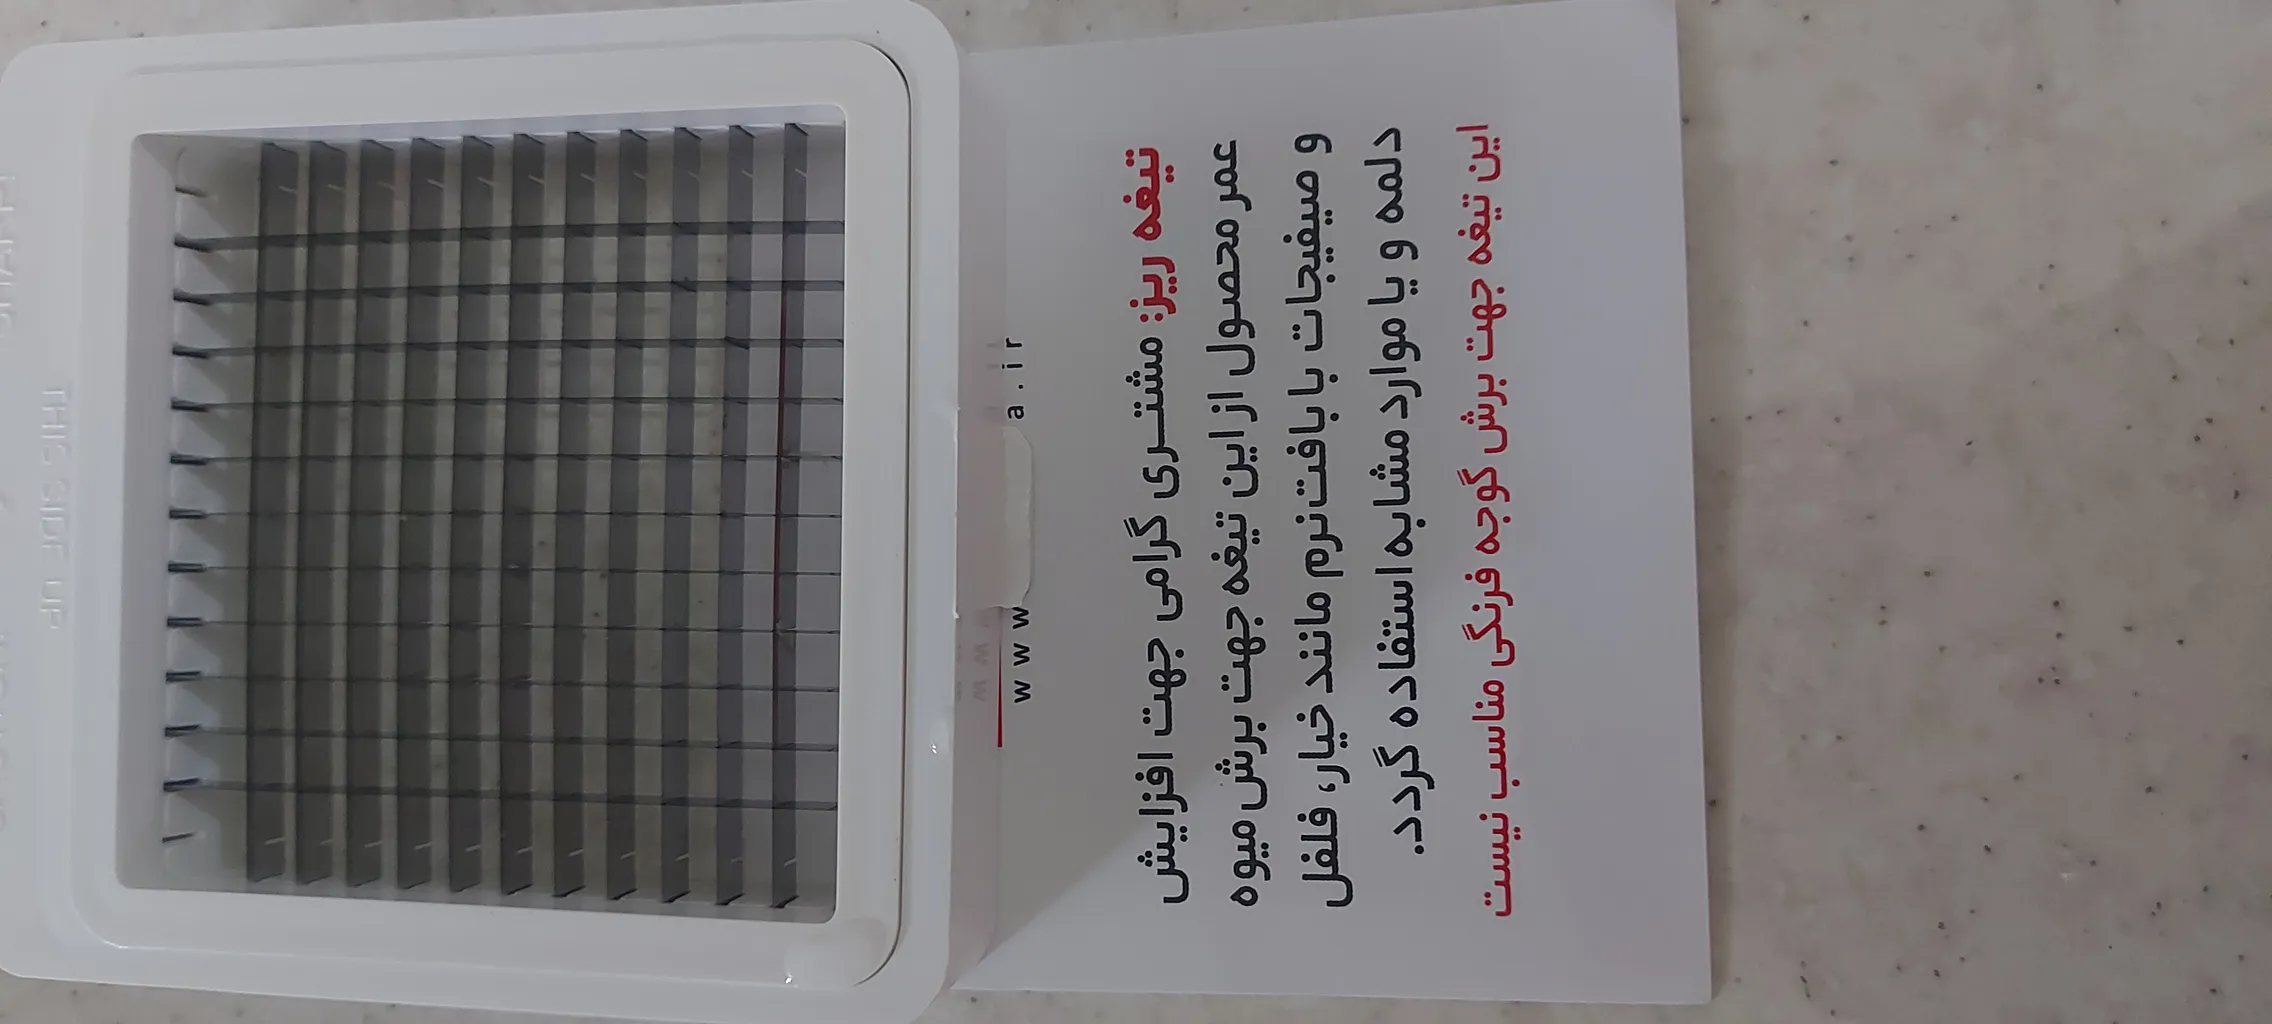 تیغه ریز: مشتری گرامی جهت افزایش
عمر محصول از این تیغه جهت برش میوه
و صیفیجات با بافت نرم مانند خیار، فلفل
دلمه و یا موارد مشابه استفاده گردد.
این تیغه جهت برش گوجه فرنگی مناسب نیست
www
a.ir
THIS SIDE UP